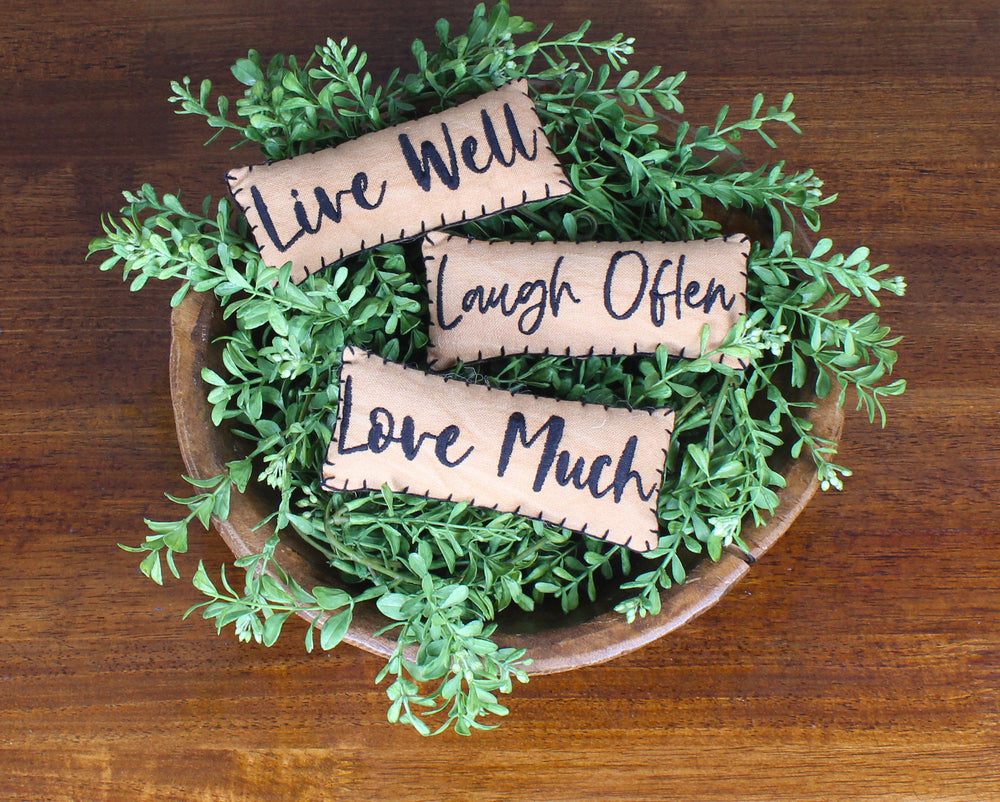 Live Well
Laugh Often
Love Much